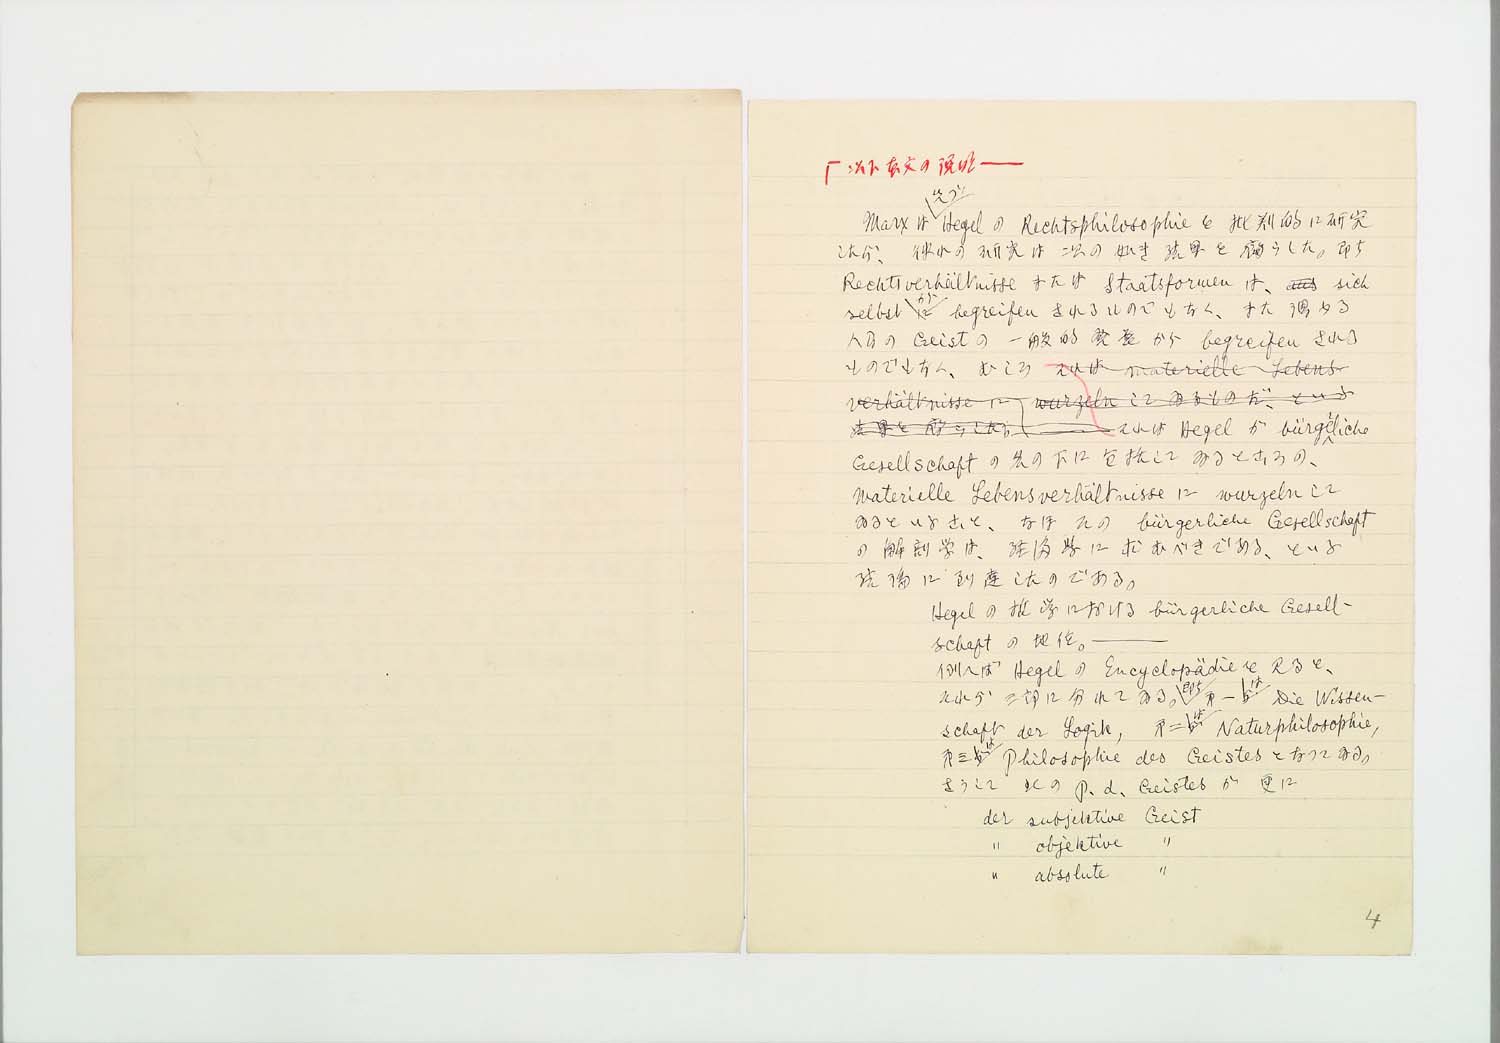 「以下本文の説明——
先づ
Marxは Hegelの Rechtsphilosophieを 批判的に研究
したが、彼れの研究は次の如き結果を齎らした。即ち
Rechtsverhältnisse または Staatsformen は、aus sich
selbst から に begreifen されるものでもなく、また 謂ゆる
人間の Geist の 一般的発展から begreifen される
ものでもなく、むしろ それは materielle Lebens
verhältnisse に wurzeln してゐるものだ、といふ
結果を齎らした。 それは Hegel が bürgerliche
Gesellschaft の名の下に包括してゐるところの、
materielle Lebensverhältnisse に wurzeln して
ゐるといふこと、なほその bürgerliche Gesellschaft
の解剖学は、経済学に求むべきである、といふ
結論に到達したのである。
Hegelの哲学における bürgerliche Gesell-
schaft の地位。——
例へば Hegelの Encyclopädie を見ると、
それが三部に分れてゐる。即ち 第一部は Die Wissen-
schaft der Logik, 第二部は Naturphilosophie,
第三部は Philosophie des Geistes となつてゐる。
さうして此の P. d. Geistes が 更に
der subjektive Geist
〃 objektive 〃
〃 absolute 〃
4